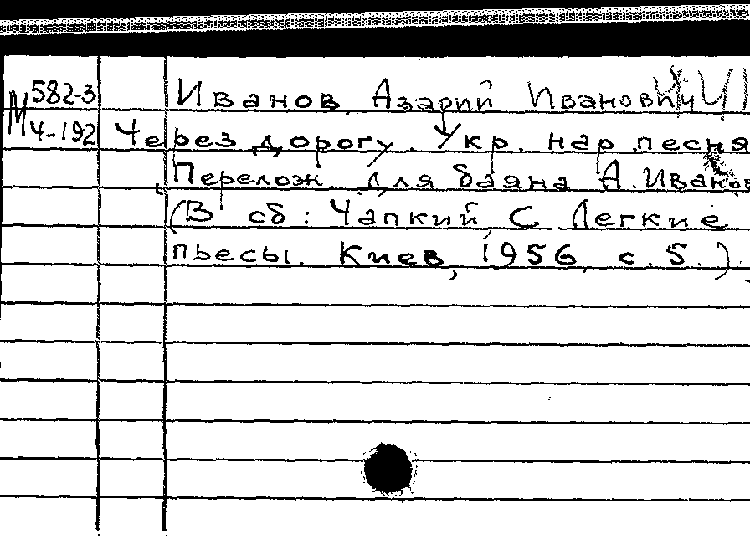 М 582-3 Иванов Азарий Иванович
Ч-192 Через дорогу. Укр. нар. песня
Перелож для баяна А. Иванов
(В сб: Чапкий, С Легкие
пьесы. Киев, 1956, с. 5.)